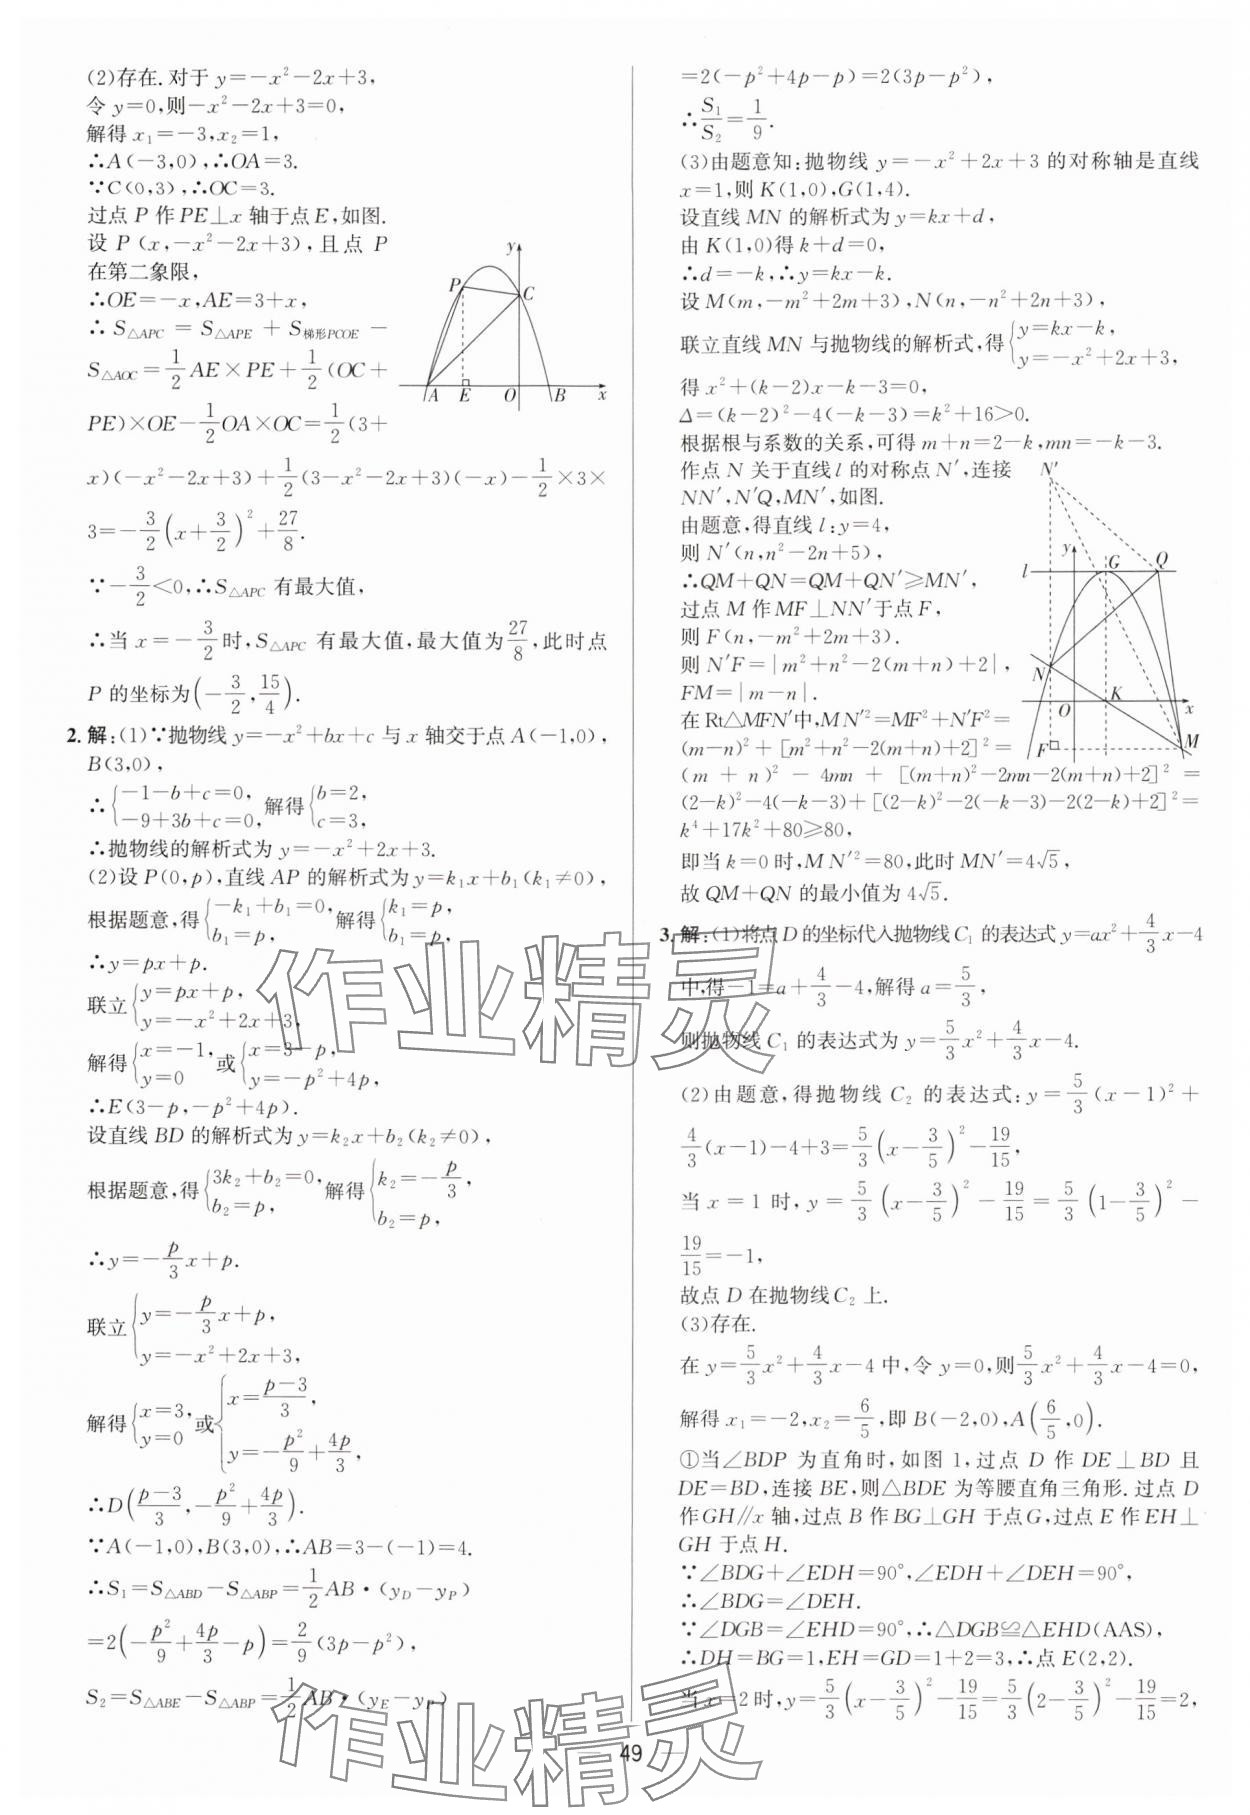 (2)存在.对于 y=−x²−2x+3,
令 y=0,则−x²−2x+3=0,
解得 x₁=−3,x₂=1,
∴A(−3,0),∴OA=3.
∵C(0,3),∴OC=3.
过点 P 作 PE⊥x 轴于点 E,如图.
设 P(x,−x²−2x+3),且点 P
在第二象限,
∴OE=−x,AE=3+x,
∴S△APC=S△APE+S梯形PCOE−
S△AOC=1/2 AE×PE+1/2(OC+
PE)×OE−1/2 OA×OC=1/2(3+
x)(−x²−2x+3)+1/2(3−x²−2x+3)(−x)−1/2×3×
3=−3/2(x+3/2)²+27/8.
∵−3/2<0,∴S△APC 有最大值,
∴当 x=−3/2时,S△APC 有最大值,最大值为27/8,此时点
P 的坐标为(−3/2,15/4).
y
P
C
A
E
O
B
x
2.解:(1)∵抛物线 y=−x²+bx+c 与 x 轴交于点 A(−1,0),
B(3,0),
∴{−1−b+c=0, −9+3b+c=0, 解得{b=2, c=3,
∴抛物线的解析式为 y=−x²+2x+3.
(2)设 P(0,p),直线 AP 的解析式为 y=k₁x+b₁(k₁≠0),
根据题意,得{−k₁+b₁=0, b₁=p, 解得{k₁=p, b₁=p,
∴y=px+p.
联立{y=px+p, y=−x²+2x+3,
解得{x=−1, y=0 或{x=3−p, y=−p²+4p,
∴E(3−p,−p²+4p).
设直线 BD 的解析式为 y=k₂x+b₂(k₂≠0),
根据题意,得{3k₂+b₂=0, b₂=p, 解得{k₂=−p/3, b₂=p,
∴y=−p/3 x+p.
联立{y=−p/3 x+p, y=−x²+2x+3,
解得{x=3, y=0 或{x=(p−3)/3, y=−p²/9+4p/3,
∴D((p−3)/3,−p²/9+4p/3).
∵A(−1,0),B(3,0),∴AB=3−(−1)=4.
∴S₁=S△ABD−S△ABP=1/2 AB·(y_D−y_P)
=2(−p²/9+4p/3−p)=2/9(3p−p²),
S₂=S△ABE−S△ABP=1/2 AB·(y_E−y_P)
=2(−p²+4p−p)=2(3p−p²),
∴S₁/S₂=1/9.
(3)由题意知:抛物线 y=−x²+2x+3 的对称轴是直线
x=1,则 K(1,0),G(1,4).
设直线 MN 的解析式为 y=kx+d,
由 K(1,0)得 k+d=0,
∴d=−k,∴y=kx−k.
设 M(m,−m²+2m+3),N(n,−n²+2n+3),
联立直线 MN 与抛物线的解析式,得{y=kx−k, y=−x²+2x+3,
得 x²+(k−2)x−k−3=0,
Δ=(k−2)²−4(−k−3)=k²+16>0.
根据根与系数的关系,可得 m+n=2−k,mn=−k−3.
作点 N 关于直线 l 的对称点 N′,连接
NN′,N′Q,MN′,如图.
由题意,得直线 l:y=4,
则 N′(n,n²−2n+5),
∴QM+QN=QM+QN′≥MN′,
过点 M 作 MF⊥NN′于点 F,
则 F(n,−m²+2m+3).
则 N′F=|m²+n²−2(m+n)+2|,
FM=|m−n|.
在 Rt△MFN′中,MN′²=MF²+N′F²=
(m−n)²+[m²+n²−2(m+n)+2]²=
(m+n)²−4mn+[(m+n)²−2mn−2(m+n)+2]²=
(2−k)²−4(−k−3)+[(2−k)²−2(−k−3)−2(2−k)+2]²=
k⁴+17k²+80≥80,
即当 k=0 时,MN′²=80,此时 MN′=4√5,
故 QM+QN 的最小值为 4√5.
N′
y
G
Q
l
N
K
O
x
F
M
3.解:(1)将点 D 的坐标代入抛物线 C₁ 的表达式 y=ax²+4/3 x−4
中,得−1=a+4/3−4,解得 a=5/3,
则抛物线 C₁ 的表达式为 y=5/3 x²+4/3 x−4.
(2)由题意,得抛物线 C₂ 的表达式:y=5/3(x−1)²+
4/3(x−1)−4+3=5/3(x−3/5)²−19/15,
当 x=1 时,y=5/3(x−3/5)²−19/15=5/3(1−3/5)²−
19/15=−1,
故点 D 在抛物线 C₂ 上.
(3)存在.
在 y=5/3 x²+4/3 x−4 中,令 y=0,则5/3 x²+4/3 x−4=0,
解得 x₁=−2,x₂=6/5,即 B(−2,0),A(6/5,0).
①当∠BDP 为直角时,如图 1,过点 D 作 DE⊥BD 且
DE=BD,连接 BE,则△BDE 为等腰直角三角形.过点 D
作GH∥x 轴,过点 B 作 BG⊥GH 于点 G,过点 E 作 EH⊥
GH 于点 H.
∵∠BDG+∠EDH=90°,∠EDH+∠DEH=90°,
∴∠BDG=∠DEH.
∵∠DGB=∠EHD=90°,∴△DGB≌△EHD(AAS),
∴DH=BG=1,EH=GD=1+2=3,∴点 E(2,2).
当 x=2 时,y=5/3(x−3/5)²−19/15=5/3(2−3/5)²−19/15=2,
49
作业精灵
作业精灵